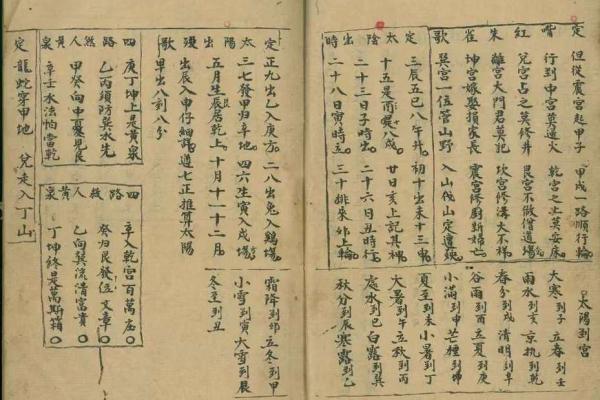 定嘴紅朱雀歌
但從震宮起甲子 甲戌一路順行輪
行到中宮莫遇火 乾宮之上莫安床
兌宮占之莫修井 艮宮不做僧道場
離宮大門君莫犯 坎宮修溝大不祥
坤宮嫁娶損家長 震宮修廚新婦亡
巽宮一位管山野 入山伐山定遭殃
定太陰出時
三辰五巳八午升 初十出未十三申
十五是酉八戌 廿日亥上記其神
二十三日子時出 二十六日丑時行
二十八日寅時立 三十排來卯上輪
太陽到宮
大寒到子立春到壬
雨水到亥京執到乾
春分到戌清明到辛
谷雨到酉立夏到庚
小滿到申芒種到坤
夏至到未小暑到丁
大暑到午立秋到丙
處水到巳白露到巽
秋分到辰寒露到乙
定太陽出沒歌
正九出乙入庚方 二八出兔入鷄場
三七發甲归辛地 四六生寅入戌場
五月生艮居乾上 十月十一十二月
出辰入申仔細詳 遵七正推算太陽
早出八刻八分
霜降到卯立冬到甲
小雪到寅大雪到艮
冬至到丑
四路煞人黃泉
庚丁坤上是黃泉
乙丙須防巽水先
甲癸向中憂見艮
辛壬水法怕當乾
四路救人黃泉
辛入乾宮百萬庄
癸归艮發位文章
乙向巽流清富貴
丁坤終是萬斯箱
定龍蛇穿甲地 兌走入丁山